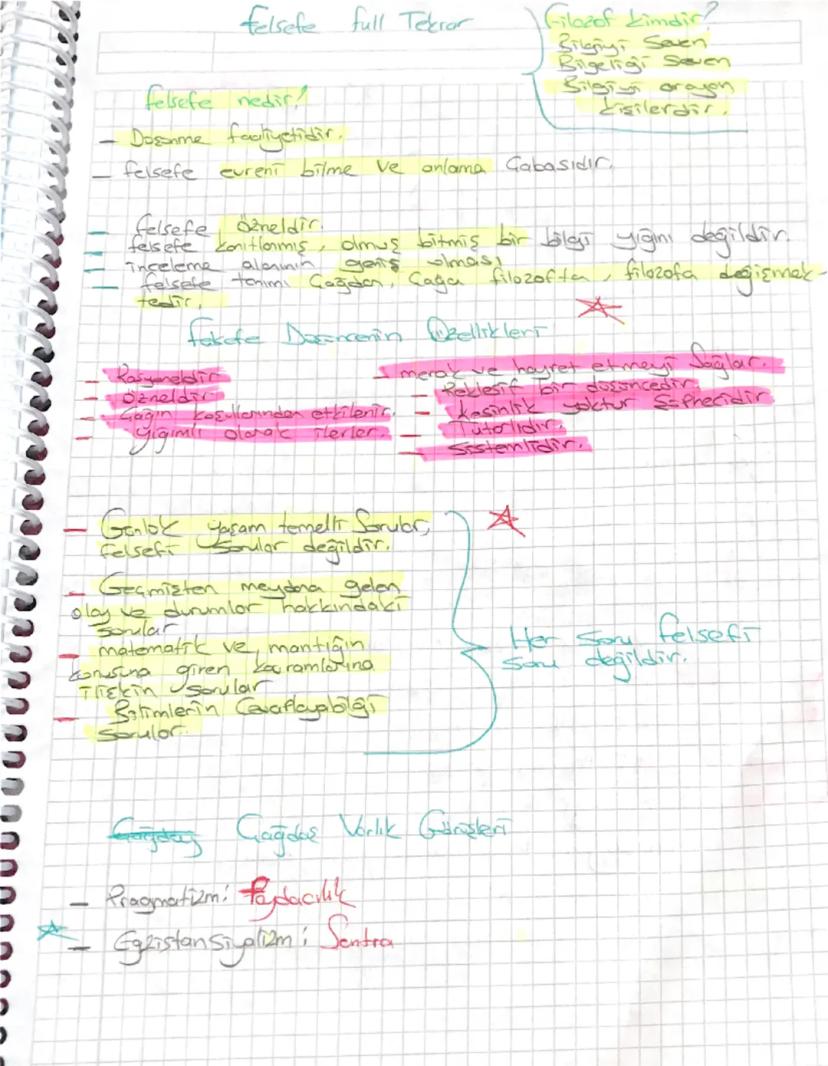 felsefe full Tekrar
Filozof kimdir?
Bilgiyi Seven
Bilgeliği Seven
Bilgiyi arayan
kişilerdir.
felsefe nedir?
— Düşünme faaliyetidir.
— felsefe evreni bilme ve anlama Çabasıdır.
— felsefe özneldir.
— felsefe kanıtlanmış, olmuş bitmiş bir bilgi yığını değildir.
— inceleme alanının geniş olması
— felsefe tanımı Çağdan, Çağa filozofta, filozofa değişmek-
tedir.
felsefe Düşüncenin Özellikleri
— Rasyoneldir
— özneldir.
— Çağın koşullarından etkilenir.
— Yığımlı olarak ilerler.
— merak ve hayret etmeyi Sağlar.
— Refleksif bir düşüncedir
— kesinlik yoktur Şüphecidir
— Tutarlıdır.
— Sistemlidir.
— Günlük yaşam temelli Sorular,
felsefi Sorular değildir.
— Geçmişten meydana gelen
olay ve durumlar hakkındaki
sorular
— matematik ve mantığın
konusuna giren kavramlarına
ilişkin sorular
— Bilimlerin Cevaplayabilği
sorular.
Her soru felsefi
soru değildir.
Çağdaş Çağdaş Varlık Görüşleri
— Pragmatizm: Faydacılık
— Egzistansiyalizm: Sentra